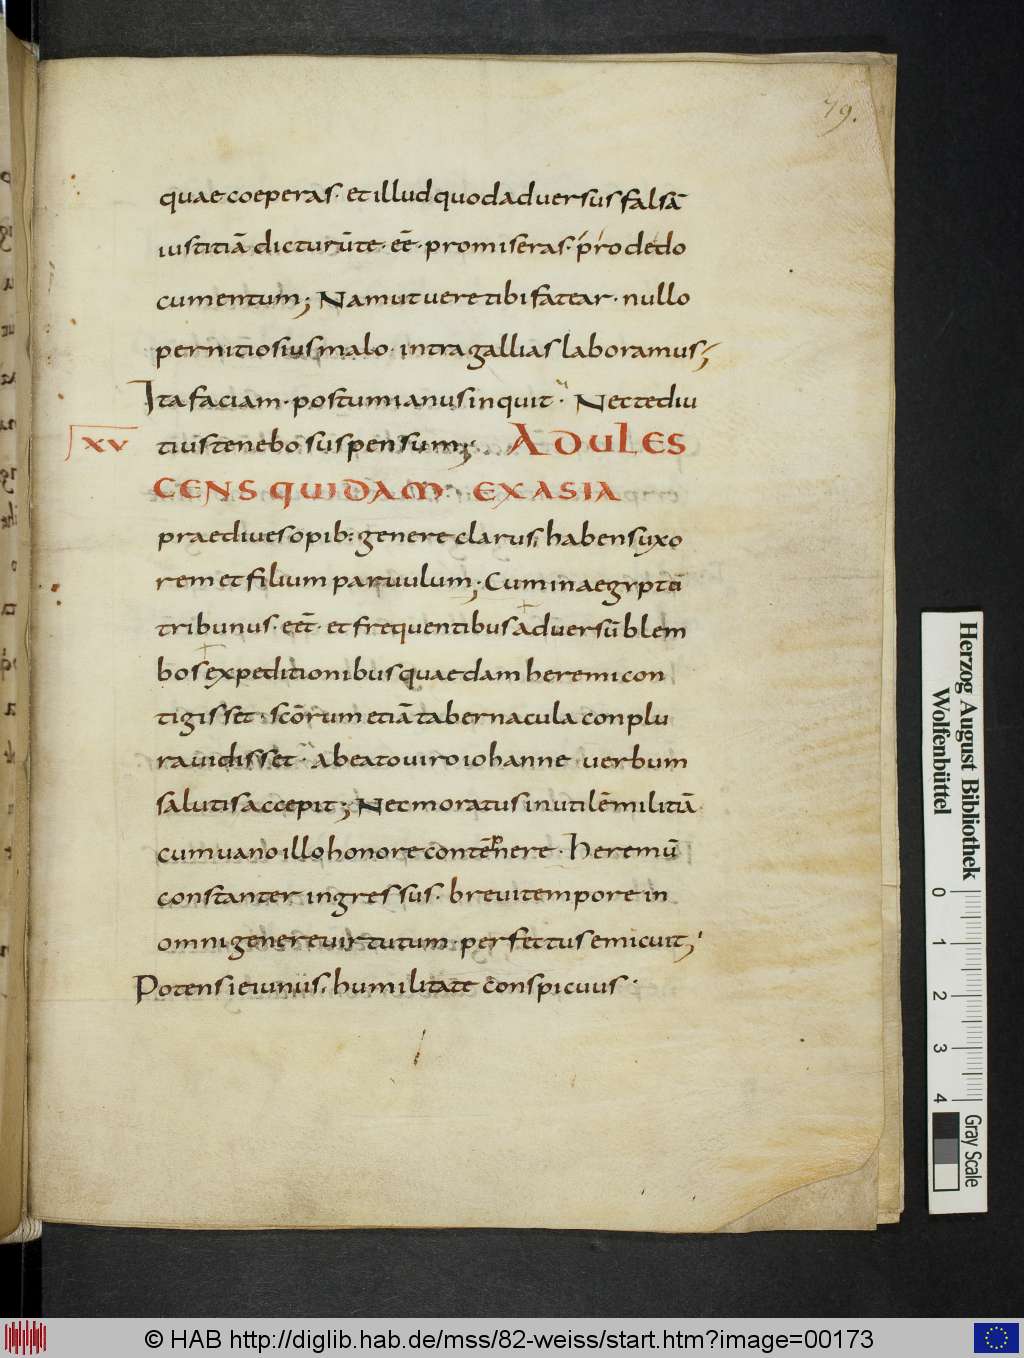 79.
quae coeperas· et illud quod adversus falsā
iustitiā dicturūte· eē· promiseras· prodedo
cumentum; Nam ut vere tibi fatear· nullo
pernitiosius malo· intra gallias laboramus;
Ita faciam· postumianus inquit· Nec te diu
XV tius tenebo suspensum; ADULES
CENS QUIDAM· EX ASIA
praedives opib: genere clarus; habens uxo
rem et filium parvulum; Cum in aegypto
tribunus· eēt· et frequentibus adversū blem
bos expeditionibus quaedam heremi con
tigisset· scōrum etiā tabernacula conplu
ra vidisset· A beato viro iohanne verbum
salutis accepit; Nec moratus inutilē militiā
cum vano illo honore contēpnere· heremū
constanter ingressus· brevi tempore in
omni genere virtutum· perfectus emicuit;
Potens ieiuniis, humilitate conspicuus·
Herzog August Bibliothek
Wolfenbüttel
0 1 2 3 4
Gray Scale
© HAB http://diglib.hab.de/mss/82-weiss/start.htm?image=00173